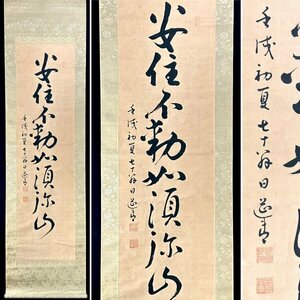 安住不動如須弥山
壬戌初夏七十翁日
安住不動如須弥山
壬戌初夏七十翁日
壬戌初夏七十翁日